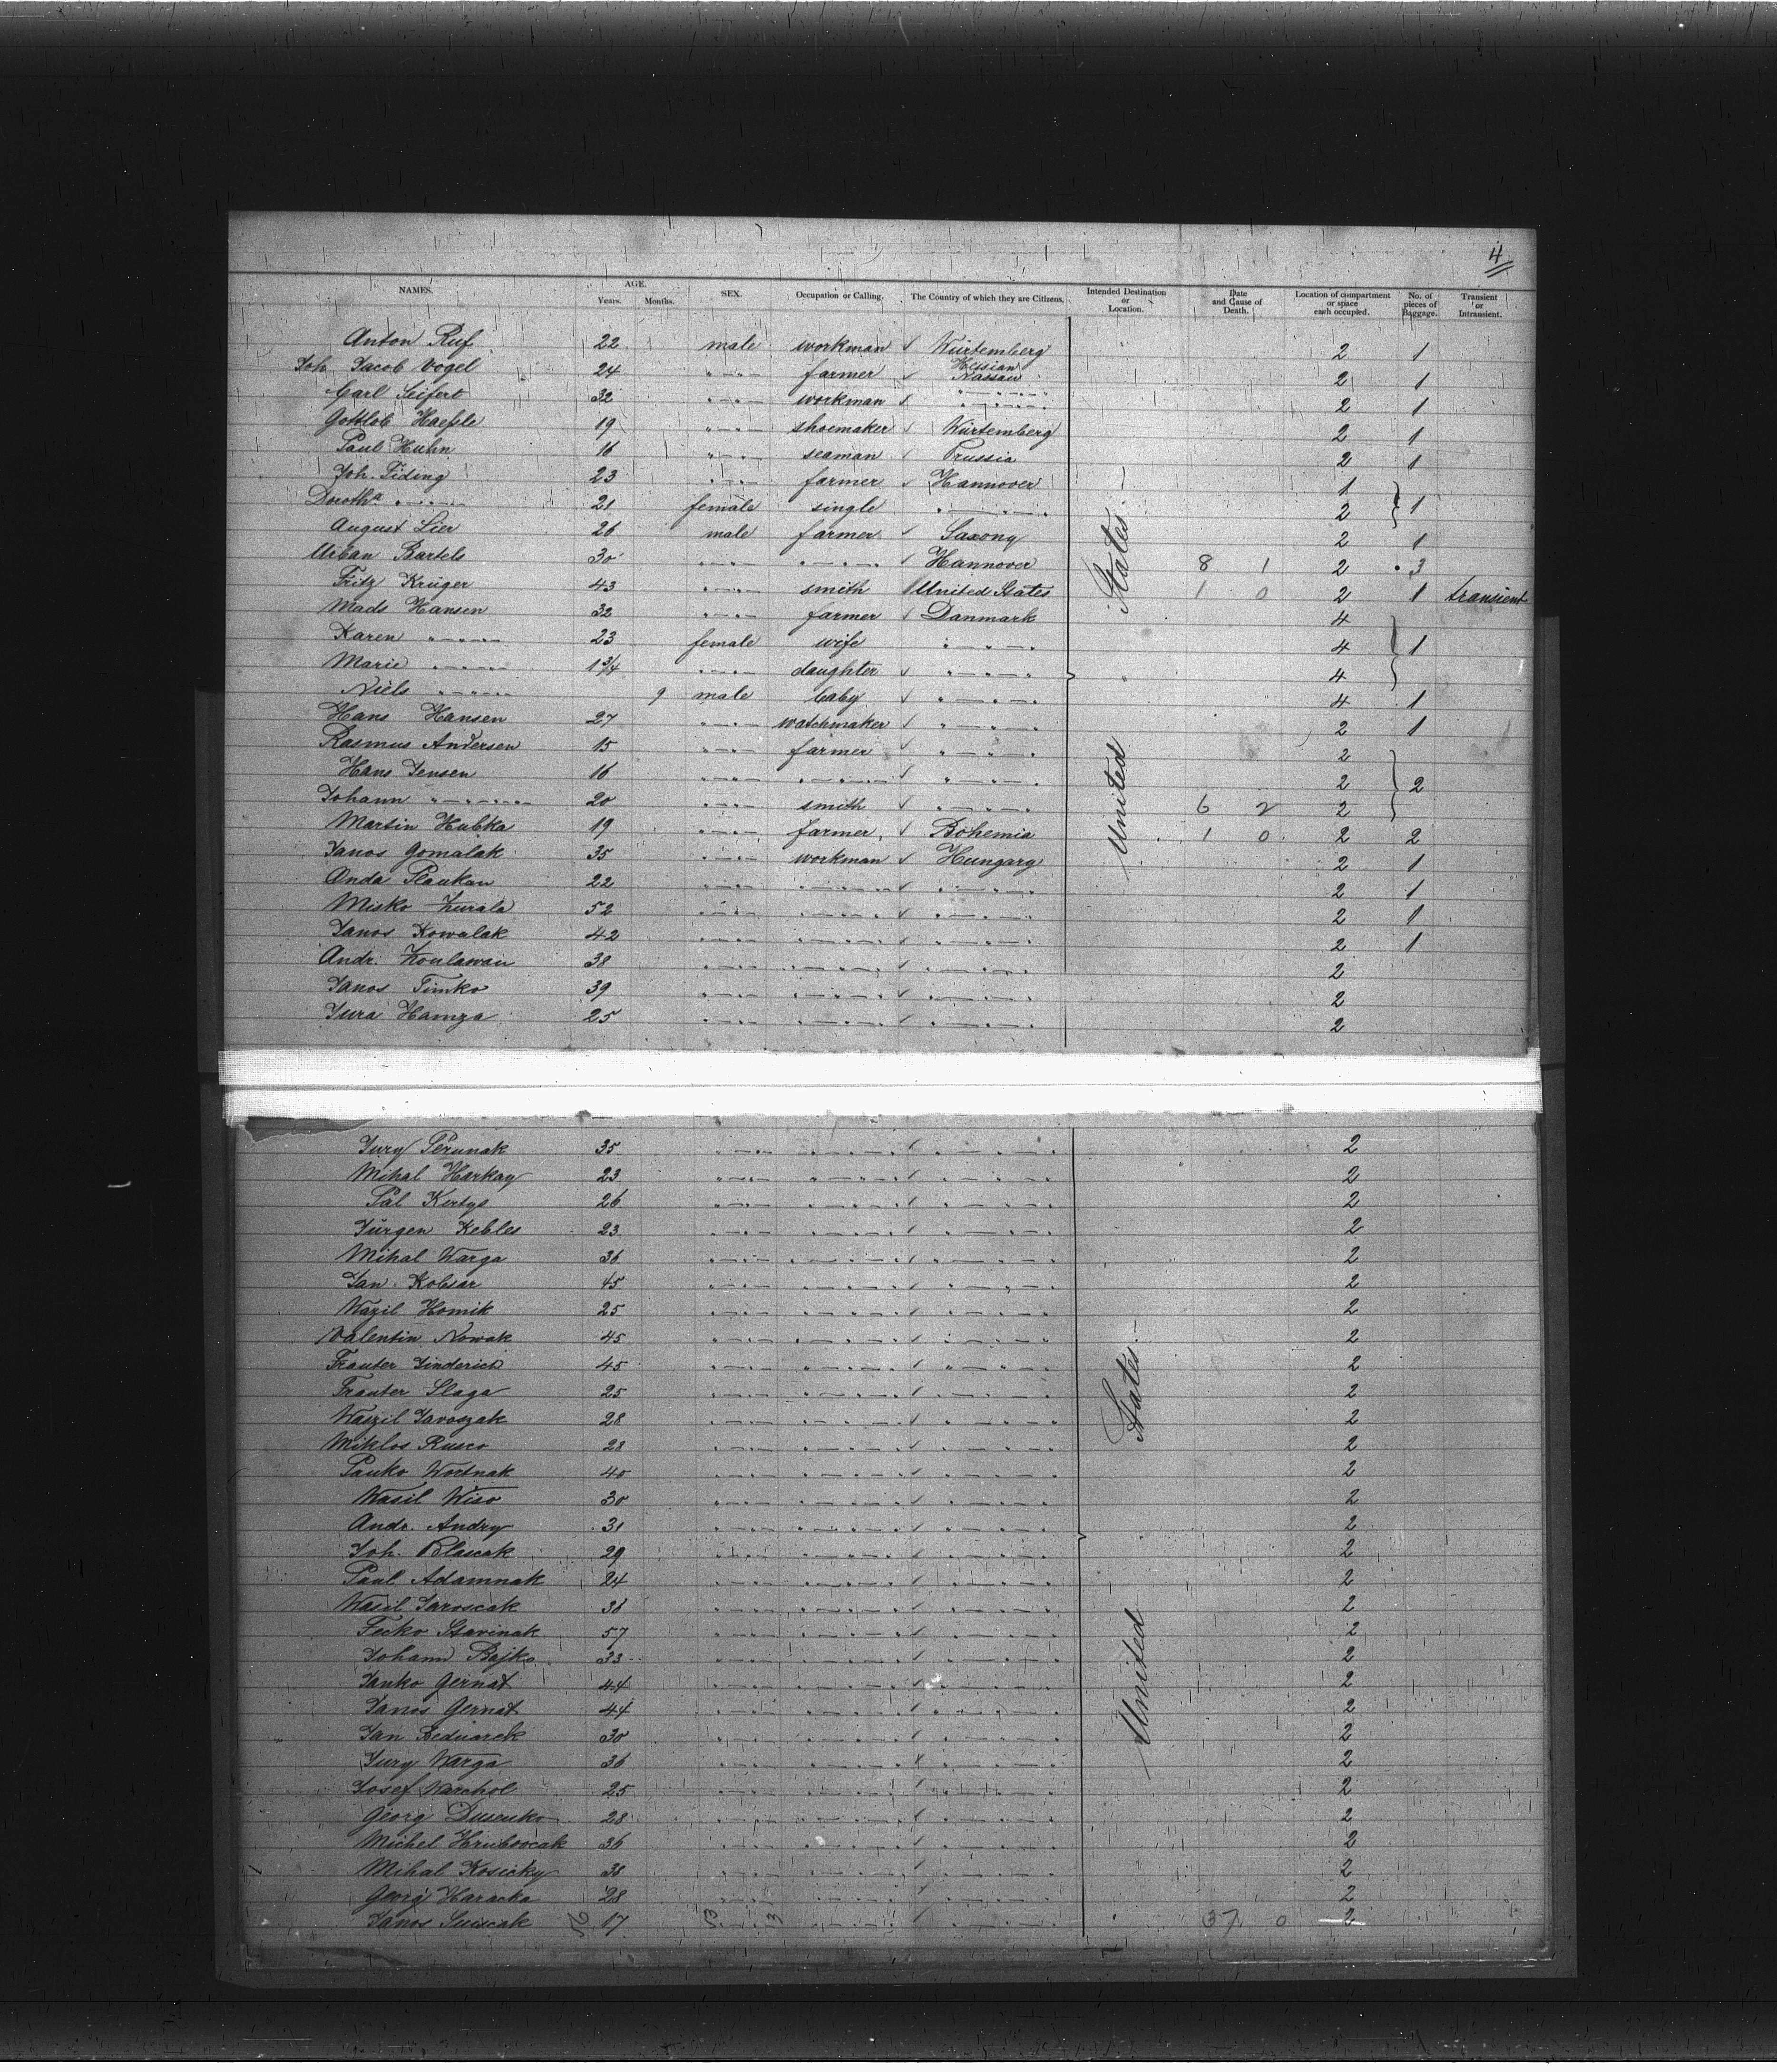 4
NAMES. AGE. Years. Months. SEX. Occupation or Calling. The Country of which they are Citizens. Intended Destination or Location. Date and Cause of Death. Location of compartment or space each occupied. No. of pieces of Baggage. Transient or Intransient.
Anton Ruf 22 male workman √ Würtemberg 2 1
Joh. Jacob Vogel 24 " farmer √ Hessian Nassau 2 1
Carl Seifert 32 " workman √ " 2 1
Gottlob Haefele 19 " shoemaker √ Würtemberg 2 1
Paul Huhn 16 " seaman √ Prussia 2 1
Joh. Fiding 23 " farmer √ Hannover 1
Doroth.a " 21 female single " 2 1
August Lier 26 male farmer √ Saxony 2 1
Urban Bartels 30 " " √ Hannover 8 1 2 3
Fritz Krüger 43 " smith United States 1 0 2 1 transient
Mads Hansen 32 " farmer √ Danmark 4
Karen " 23 female wife " 4 1
Marie " 1 3/4 " daughter √ " 4
Niels " 9 male baby √ " 4 1
Hans Hansen 27 " watchmaker √ " 2 1
Rasmus Andersen 15 " farmer √ " 2
Hans Jensen 16 " " √ " 2 2
Johann " 20 " smith √ " 6 2 2
Martin Hubka 19 " farmer √ Bohemia 1 0 2 2
Janos Gomalak 35 " workman √ Hungary 2 1
Anda Plaukan 22 " " √ " 2 1
Misko Zurala 52 " " √ " 2 1
Janos Kowalak 42 " " √ " 2 1
Andr. 38 " " √ " 2
Janos Timko 39 " " √ " 2
Jura Hamza 25 " " √ " 2
United States
Jury Perunak 35 " " √ " 2
Mihal Harkay 23 " " √ " 2
Pal 26 " " √ " 2
Jürgen Kebles 23 " " √ " 2
Mihal Warga 36 " " √ " 2
Jan 45 " " √ " 2
Wazil Homik 25 " " √ " 2
Valentin Nowak 45 " " √ " 2
Frauter 45 " " √ " 2
Frauter Slaga 25 " " √ " 2
Waszil Jaroszak 28 " " √ " 2
Miklos Rusco 28 " " √ " 2
Panko Wortnak 40 " " √ " 2
Wasil Wiso 30 " " √ " 2
Andr. Andry 31 " " √ " 2
Joh. Blascak 29 " " √ " 2
Paul Adamnak 24 " " √ " 2
Wasil Jaroscak 36 " " √ " 2
Fecko Stavinak 57 " " √ " 2
Johann Bajko 33 " " √ " 2
Janko Gernat 44 " " √ " 2
Janos Gernat 44 " " √ " 2
Jan Bednarek 30 " " √ " 2
Jury Warga 36 " " x " 2
Josef Warchol 25 " " √ " 2
Georg Dusenko 28 " " √ " 2
Michel Hruboscak 36 " " √ " 2
Mihal Kosicky 38 " " √ " 2
Georg Haracka 28 " " √ " 2
Janos 17 " " √ " 37 0 2
United States